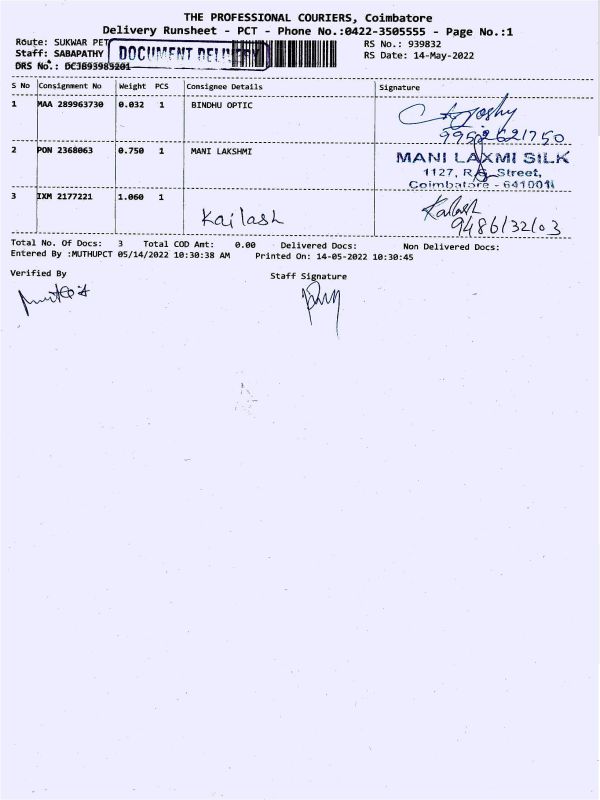 THE PROFESSIONAL COURIERS, Coimbatore
Delivery Runsheet - PCT - Phone No.:0422-3505555 - Page No.:1
Route: SUKWAR PET
RS No.: 939832
Staff: SABAPATHY
DOCUMENT DELIVERY
RS Date: 14-May-2022
DRS No.: DCJ693985201
S No Consignment No Weight PCS Consignee Details Signature
1 MAA 289963730 0.032 1 BINDHU OPTIC
2 PON 2368063 0.750 1 MANI LAKSHMI
MANI LAXMI SILK
1127, R.G. Street,
Coimbatore - 641001
3 IXM 2177221 1.060 1
Kailash
Kailash
9486132103
Total No. Of Docs: 3 Total COD Amt: 0.00 Delivered Docs: Non Delivered Docs:
Entered By :MUTHUPCT 05/14/2022 10:30:38 AM Printed On: 14-05-2022 10:30:45
Verified By Staff Signature